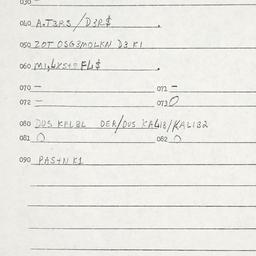 030 -
040 A.T3RS / D3R$ .
050 ZOT OSG3MOLKN D3 K1
060 F4$ .
070 - 071 -
072 - 073 0
080 DUS KFL8L DEA/DUS KAL18/KAL132
081 0 082 0
090 PAS+N K1